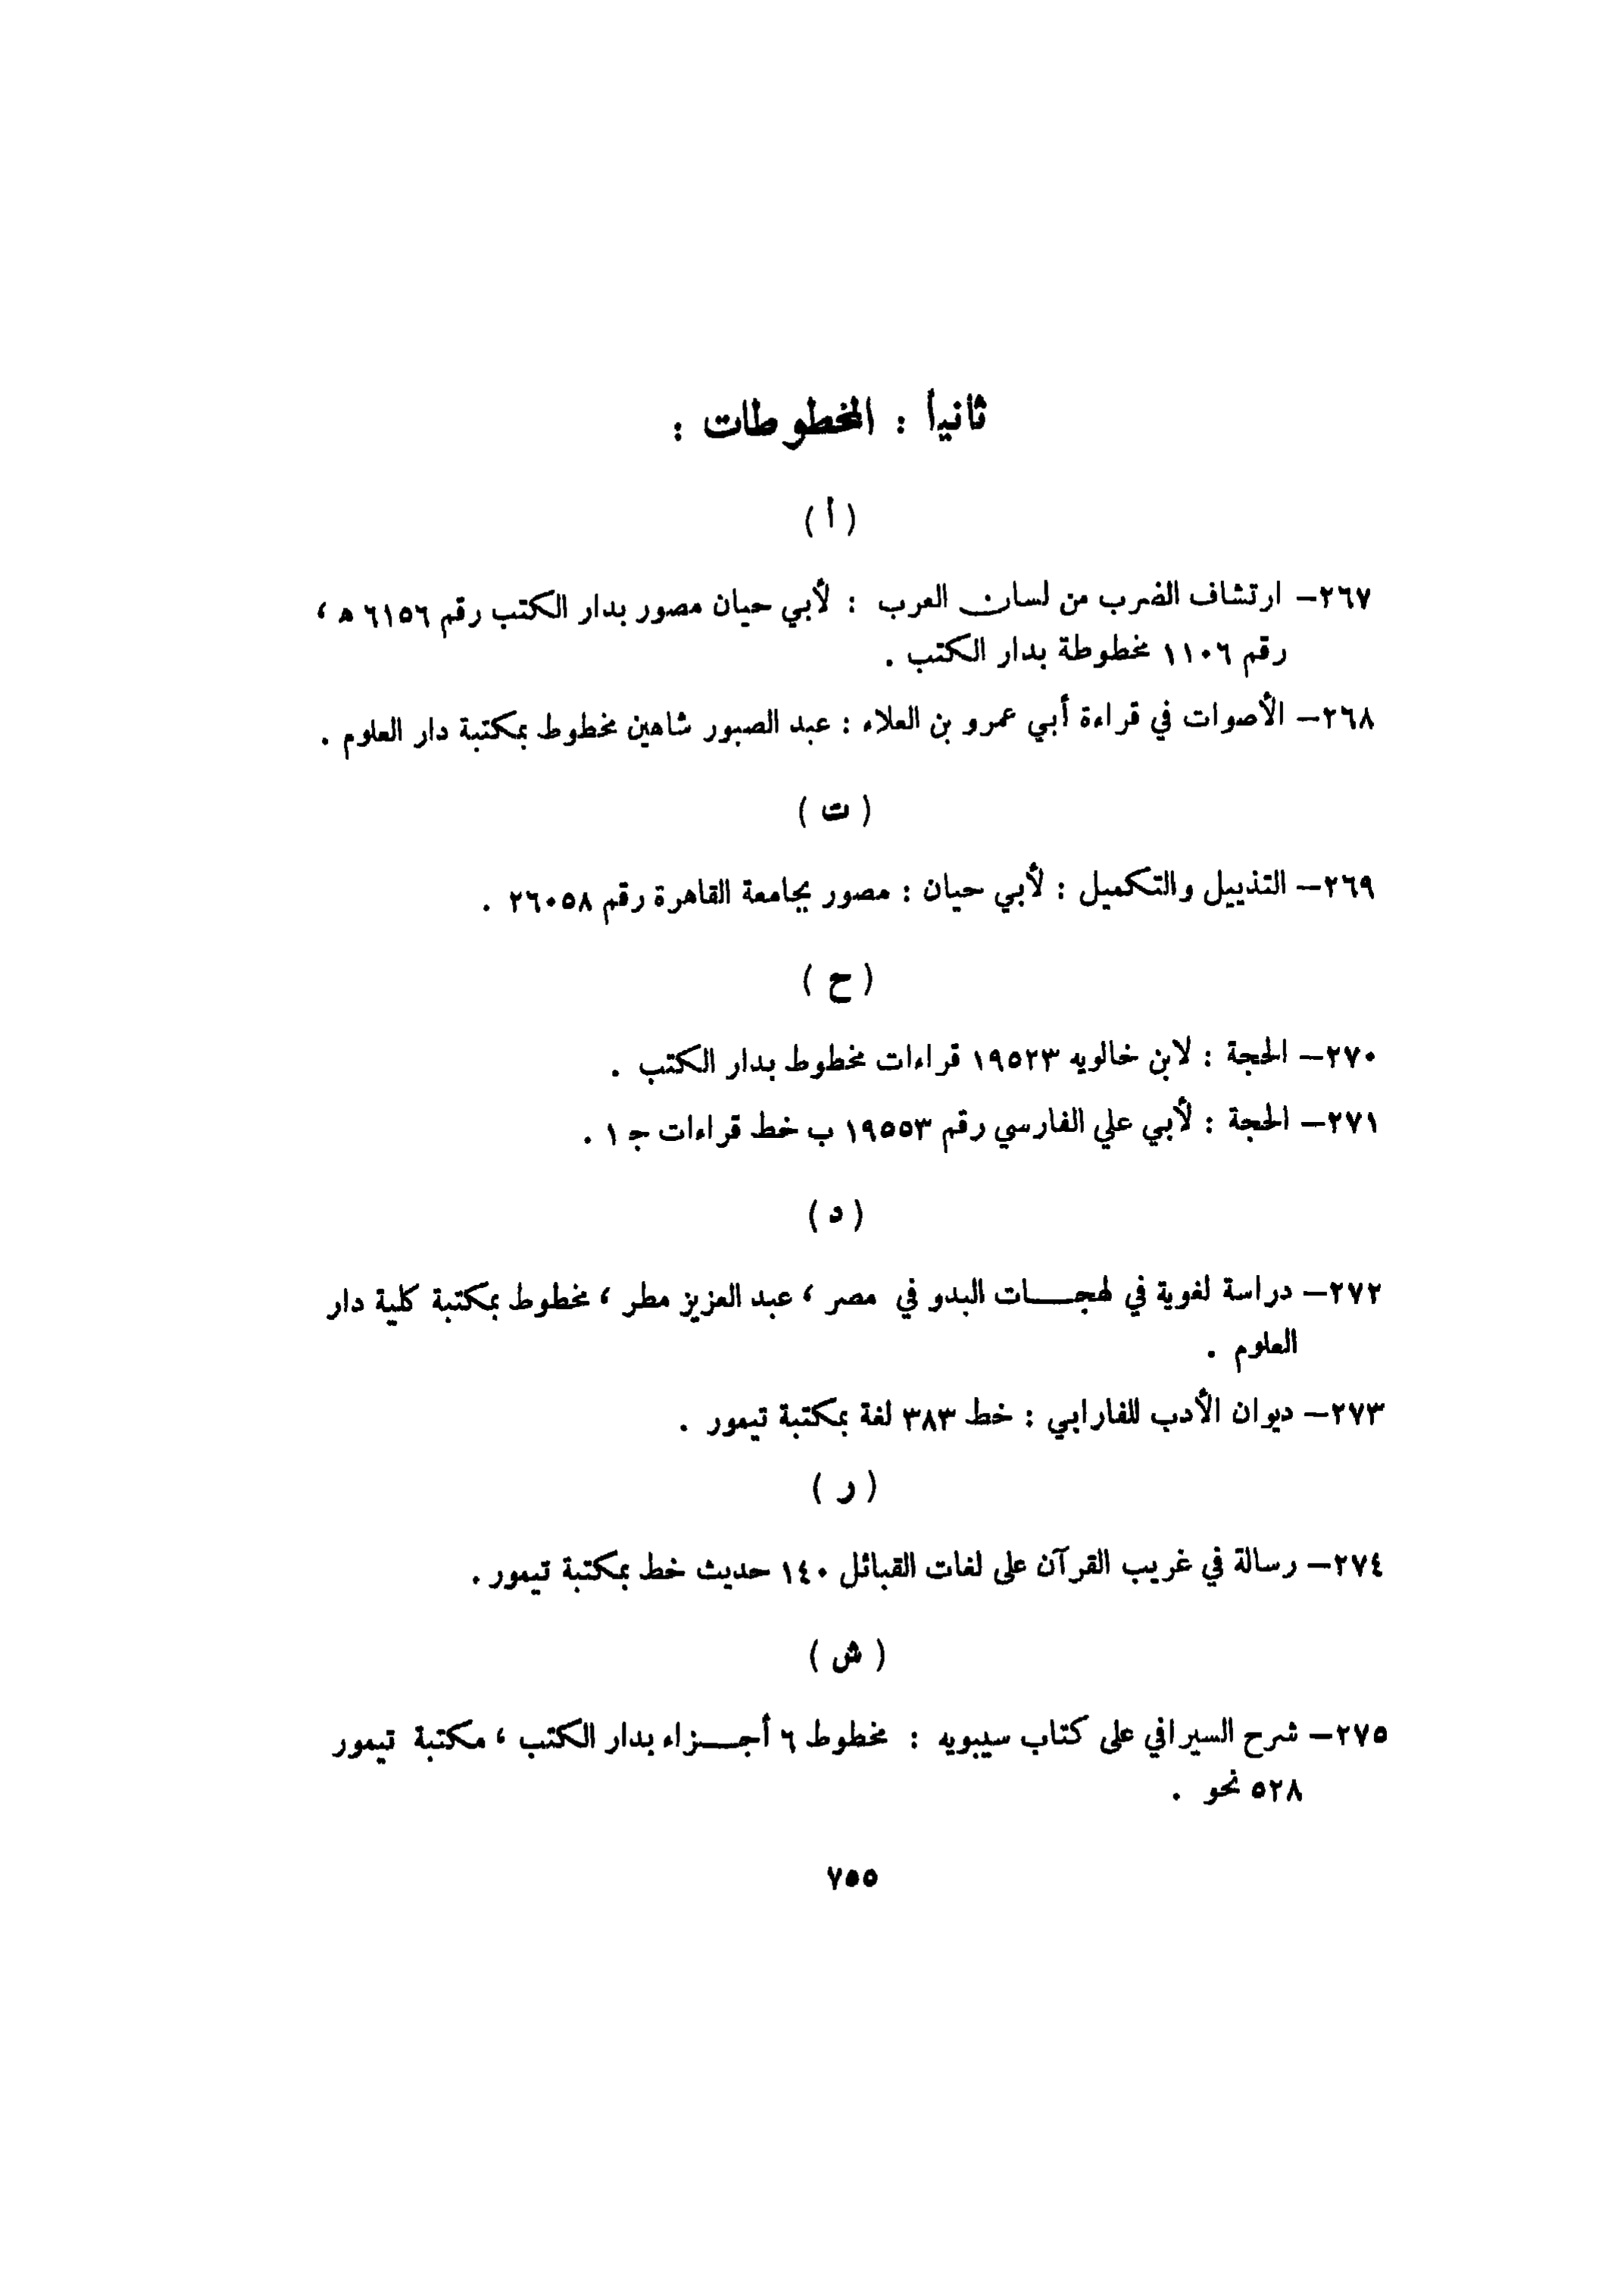 ثانياً : المخطوطات :
( أ )
٢٦٧– ارتشاف الضرب من لسان العرب : لأبي حيان مصور بدار الكتب رقم ٦١٥٦ ه ،
رقم ١١٠٦ مخطوطة بدار الكتب .
٢٦٨– الأصوات في قراءة أبي عمرو بن العلاء : عبد الصبور شاهين مخطوط بمكتبة دار العلوم .
( ت )
٢٦٩– التذييل والتكميل : لأبي حيان : مصور بجامعة القاهرة رقم ٢٦٠٥٨ .
( ح )
٢٧٠– الحجة : لابن خالويه ١٩٥٢٣ قراءات مخطوط بدار الكتب .
٢٧١– الحجة : لأبي علي الفارسي رقم ١٩٥٥٣ ب خط قراءات ج ١ .
( د )
٢٧٢– دراسة لغوية في لهجات البدو في مصر ، عبد العزيز مطر ، مخطوط بمكتبة كلية دار
العلوم .
٢٧٣– ديوان الأدب للفارابي : خط ٣٨٣ لغة بمكتبة تيمور .
( ر )
٢٧٤– رسالة في غريب القرآن على لغات القبائل ١٤٠ حديث خط بمكتبة تيمور .
( ش )
٢٧٥– شرح السيرافي على كتاب سيبويه : مخطوط ٦ أجزاء بدار الكتب ، مكتبة تيمور
٥٢٨ نحو .
٧٥٥